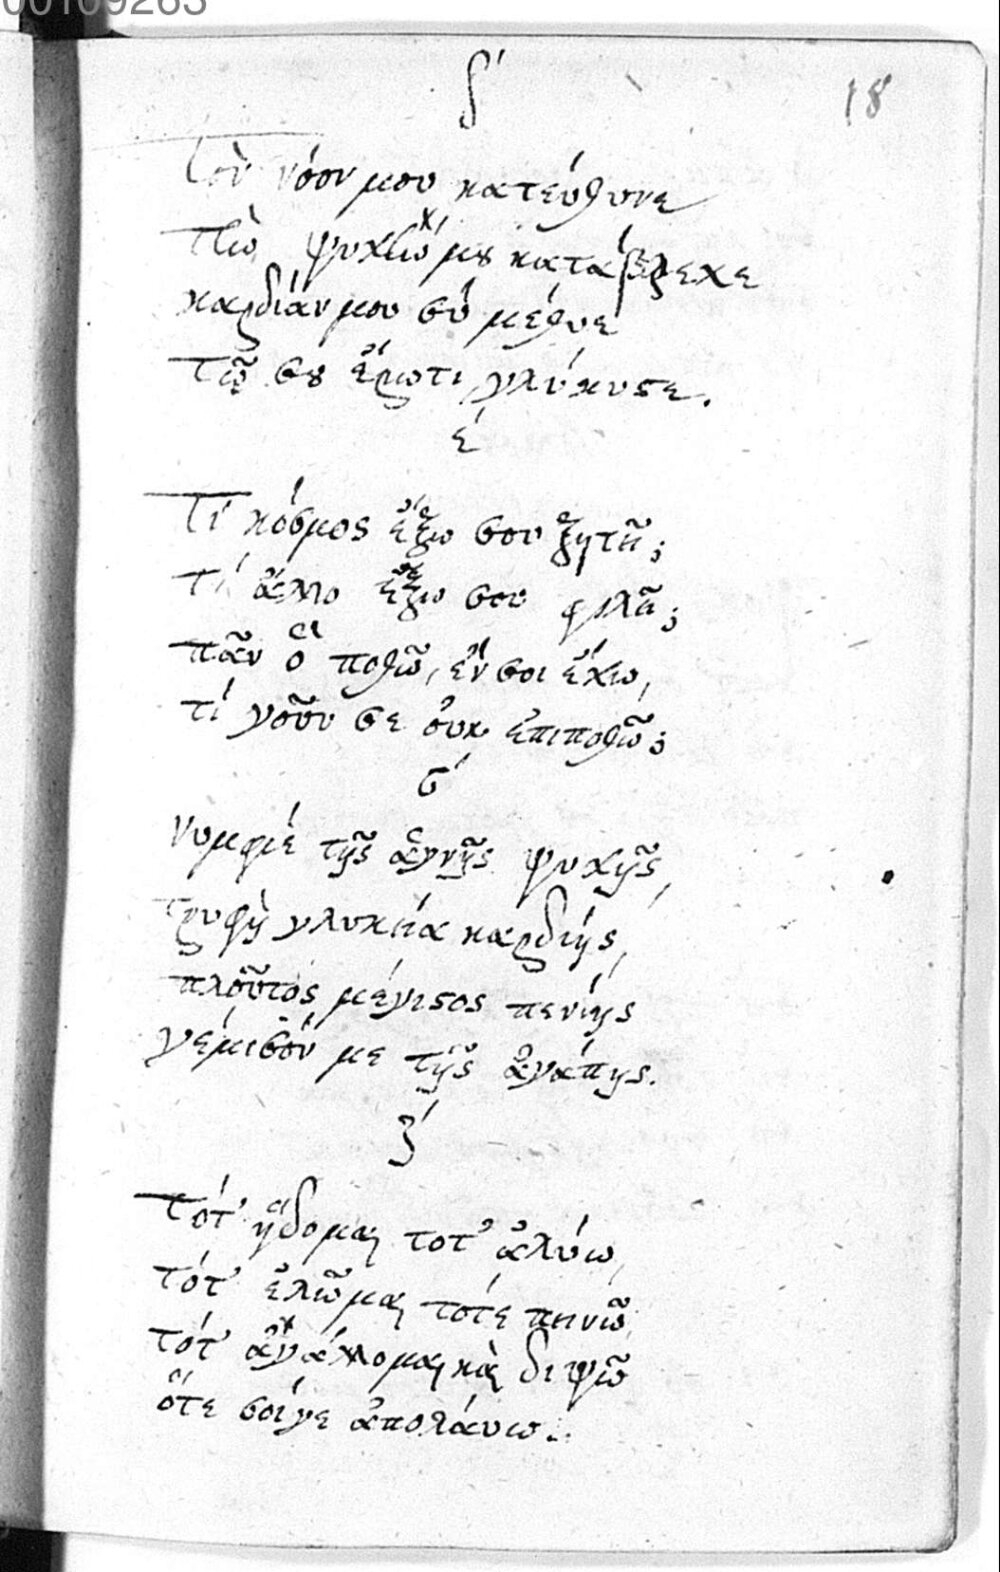 00109263
18
δ'
Τὸν νόον μου κατεύθυνε
Τὴν ψυχὴν μȣ κατάβρεχε
καρδίαν μου σὺ μέθυε
Τῷ σȣ ἔρωτι γλύκυσε.
έ
Τί κόσμος ἔξω σου ζητεῖ;
τί ἄλλο ἔξω σου φιλεῖ;
πᾶν ὃ ποθῶ, ἐν σοι ἔχω,
τί γοῦν σε οὐκ ἐπιποθῶ;
ϛ'
νυμφιέ τῆς ἁγνῆς ψυχῆς,
Τρυφὴ γλυκεῖα καρδίης,
πλοῦτός μέγιϛος πενίης
γέμισόν με τῆς ἀγάπης.
ζ'
Τότ' ἥδομαι τοτ' ἀλύω,
τότ' ἐλῶμαι τότε πεινῶ,
τότ' ἀγάλλομαι καὶ διψῶ
ὅτε σοίγε ἀπολάυω..